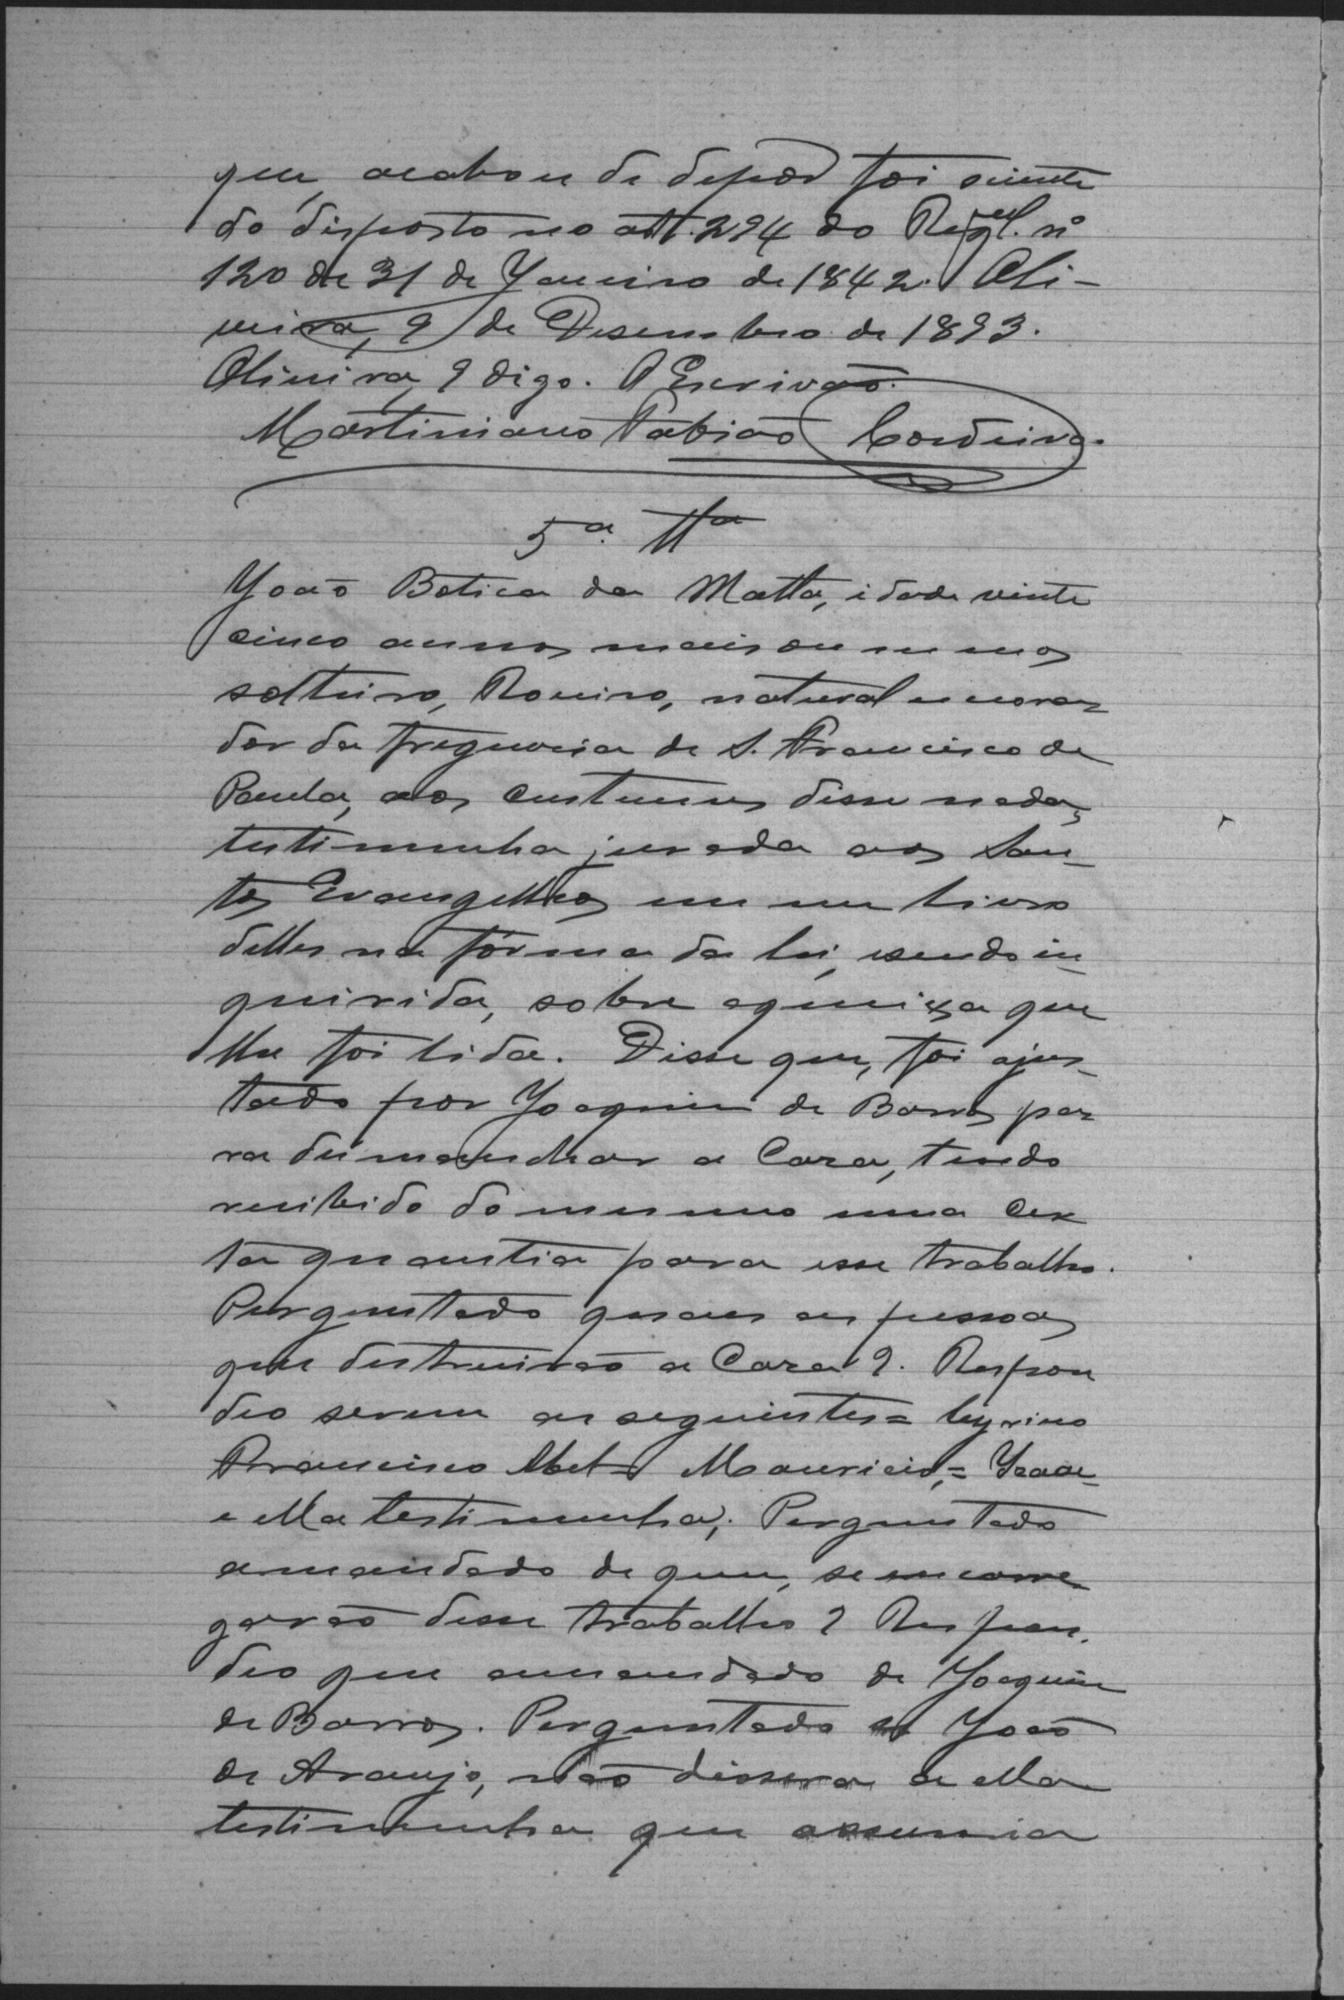 que, acabou de depôr foi sciente
do disposto no artt. 294 do Regul. nº
120 de 31 de Janeiro de 1842. Oli-
veira, 9 de Desembro de 1893.
Oliveira, 9 digo. O Escrivão.
Martiniano Fabião Cordeiro.
5ª. Ttª
João Botica da Matta, idade vinte
cinco annos mais ou menos
solteiro, Roceiro, natural e mora
dor da freguesia de S. Francisco de
Paula, aos custumes disse nada,
testimunha jurada aos San-
tos Evangelhos em um livro
delles na fórma da lei, e sendo in-
quirida, sobre a queixa que
lhe foi lida. Disse que, foi ajus-
tado por Joaquim de Barros pa
ra desmanchar a Casa, tendo
recibido do mesmo uma cer
ta quantia para esse trabalho.
Perguntado quaes as pessoas
que destruirão a Casa?. Respon
deo serem as seguintes=
Francisco = Mauricio,= Isaac
e ella testimunha; Perguntado
amandado de quem, se encarre
garão desse trabalho? Respon.
deo que amandado de Joaquim
de Barros. Perguntado se João
de Araujo, não dissera a ella
testimunha que assumia